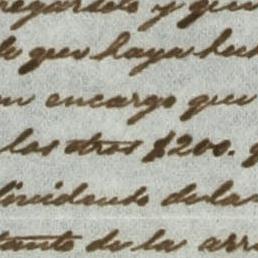 regarselo y que
de que haya hech
un encargo que
los otros $200. q
dividendo de la
tanto de la arr